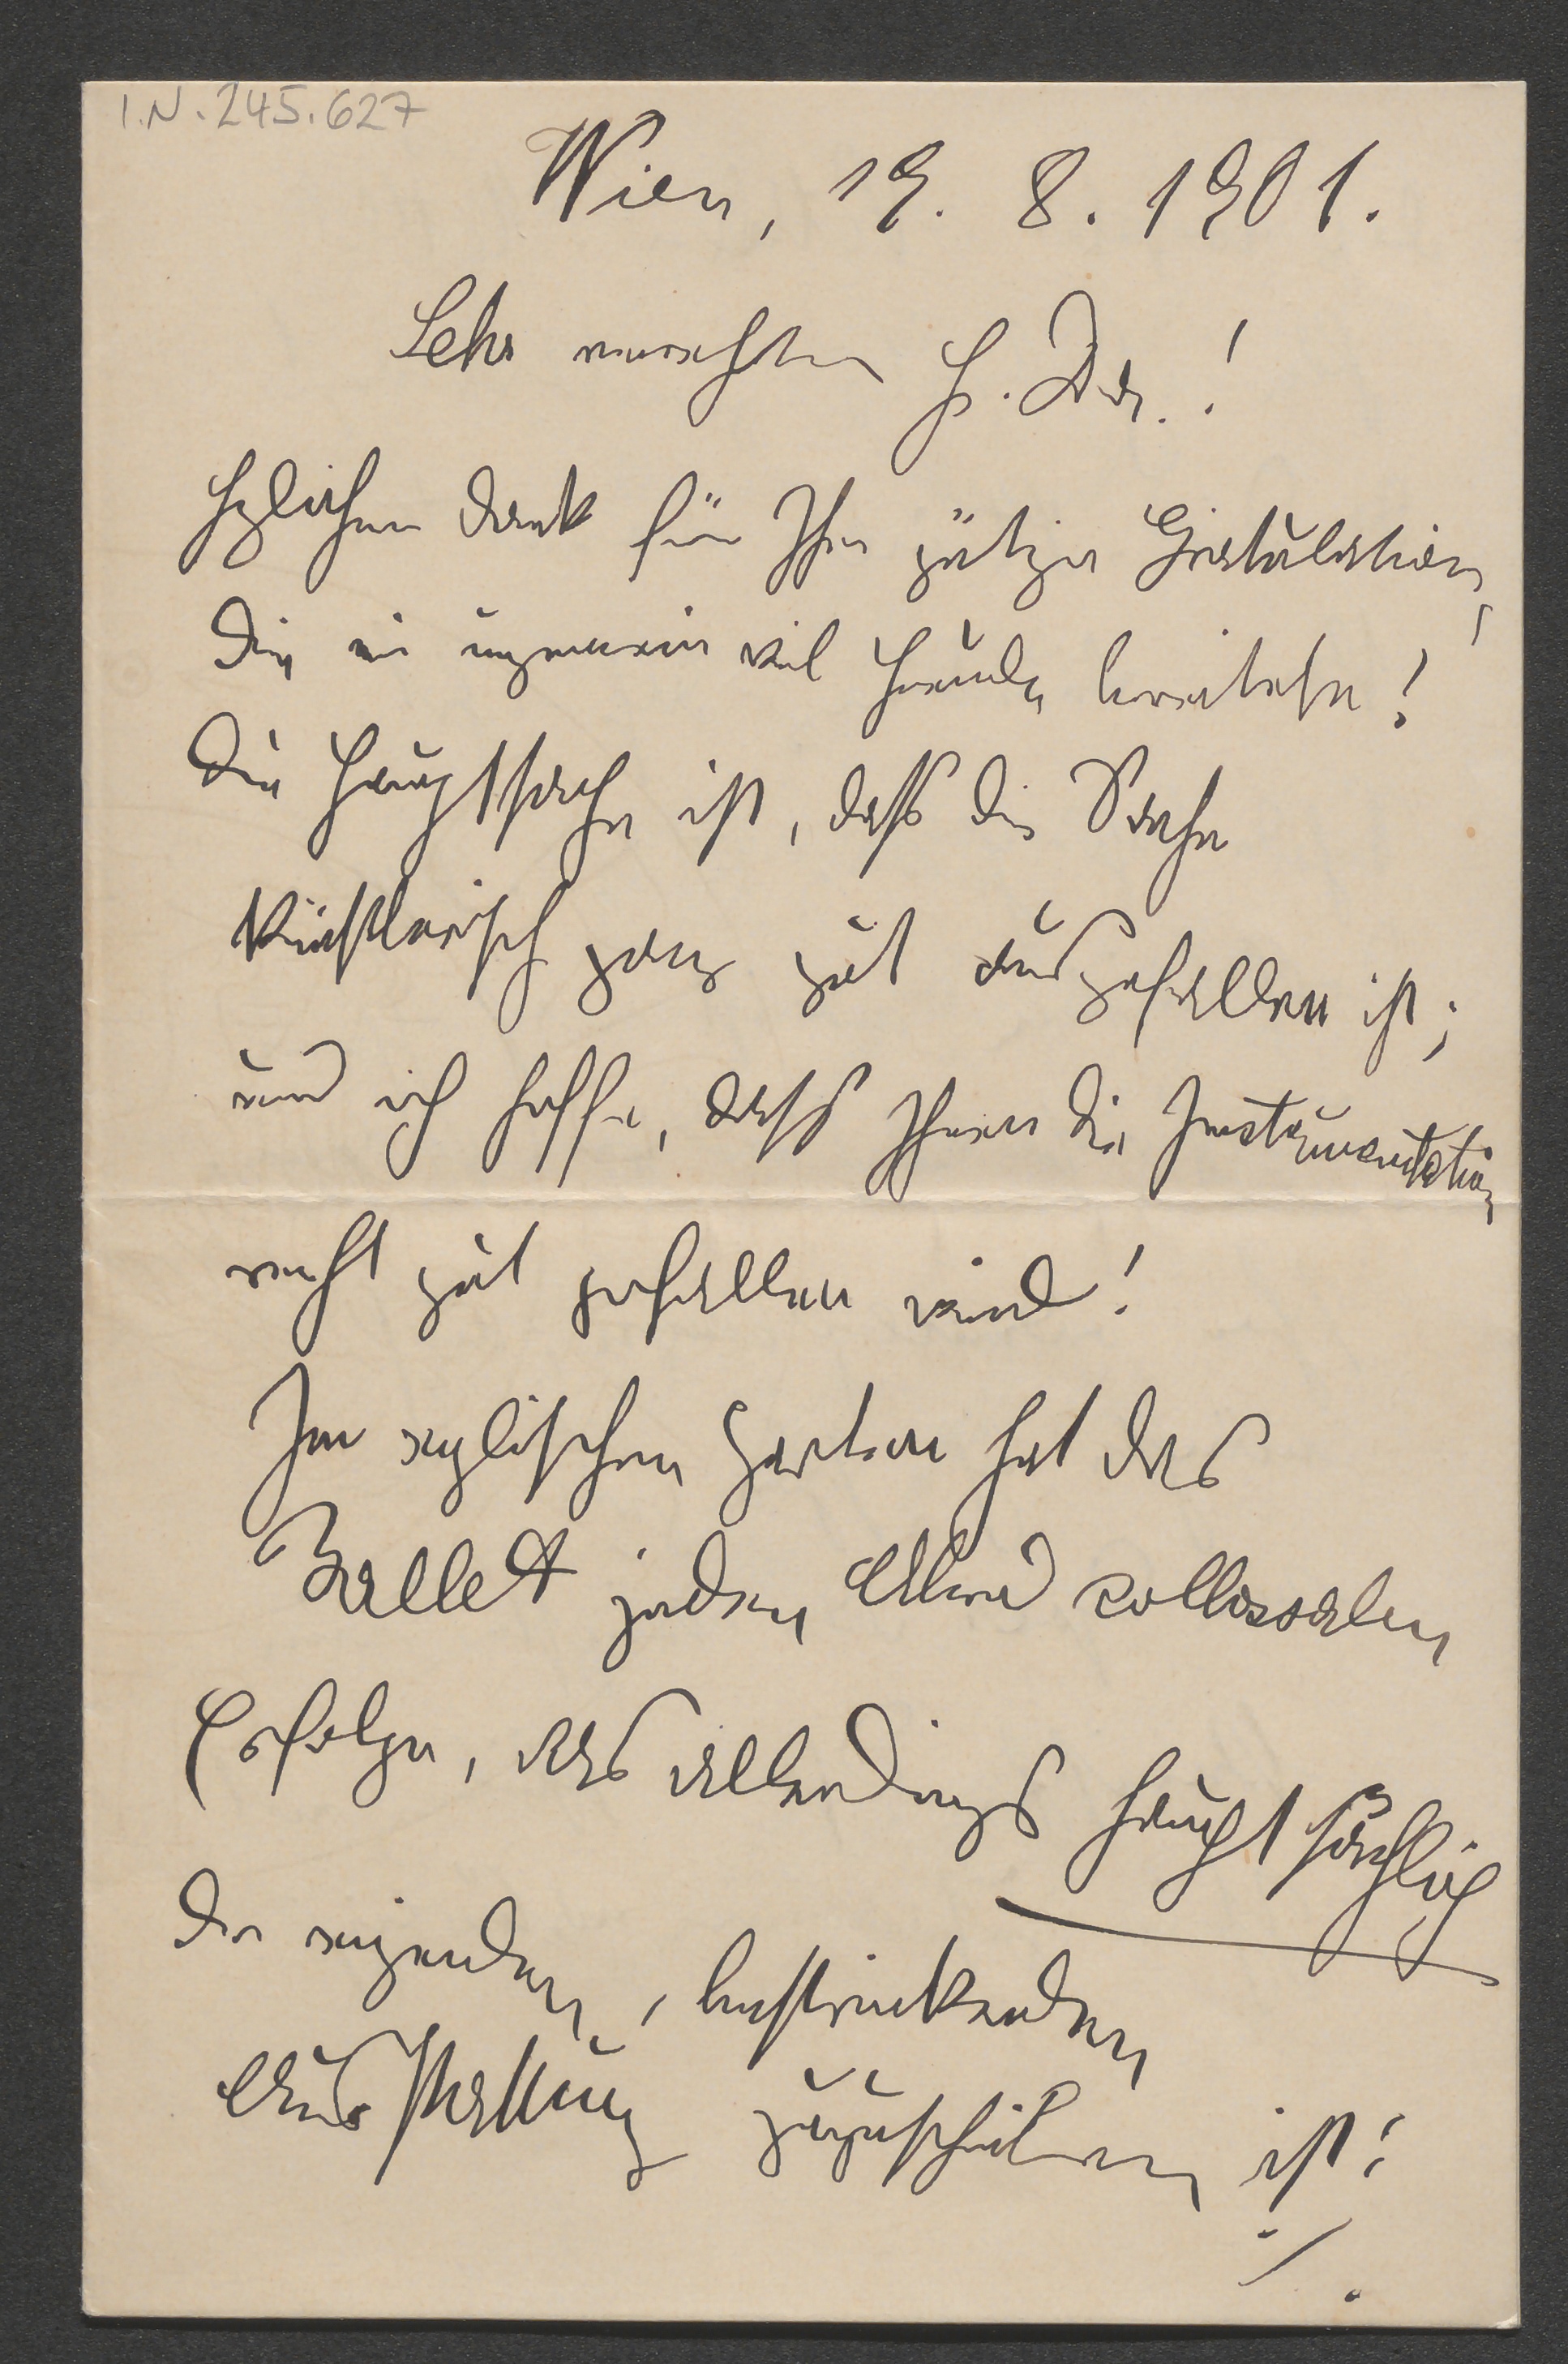 I.N. 245.627
Wien, 19. 8. 1901.
Sehr verehrter H. Dr.!
Hzlichen Dank für Ihre gütige Gratulation,
die mir ungemein viel Freude bereitete!
Die Hauptsache ist, dass die Sache
künstlerisch ganz gut ausgefallen ist;
und ich hoffe, dass Ihnen die Instrumentation
recht gut gefallen wird!
Im englischen Garten hat das
Ballett jeden Abend collossalen
Erfolge, was allerdings hauptsächlich
der reizenden, bestrickenden
Ausstattung zuzuschreiben ist;
./.